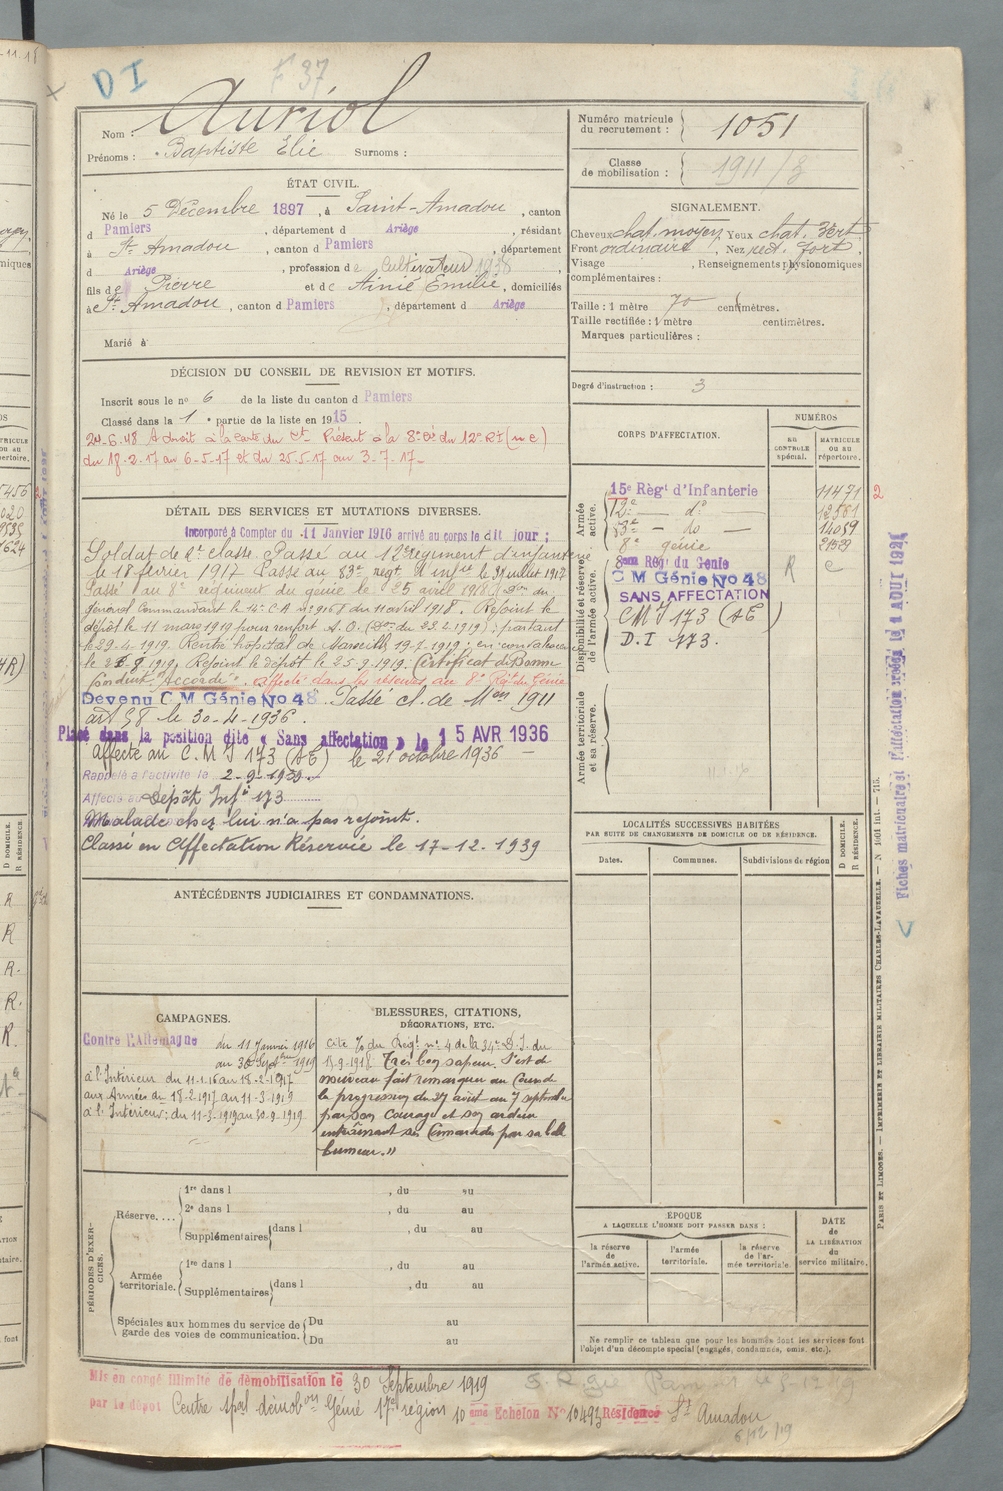 D I
F 37
Nom : Auriol
Prénoms : Baptiste Elie Surnoms :
Numéro matricule du recrutement : 1051
Classe de mobilisation : 1911/3
ÉTAT CIVIL.
Né le 5 Décembre 1897, à Saint-Amadou, canton
d Pamiers, département d Ariège, résidant
à St Amadou, canton d Pamiers, département
d Ariège, profession de Cultivateur 1938
fils de Pierre et de Aimé Emilie, domiciliés
à St Amadou, canton d Pamiers, département d Ariège
Marié à
SIGNALEMENT.
Cheveux chat. moyen Yeux chat. vert
Front ordinaire, Nez rect. fort
Visage , Renseignements physionomiques
complémentaires :
Taille : 1 mètre 70 centimètres.
Taille rectifiée : 1 mètre centimètres.
Marques particulières :
Degré d'instruction : 3
DÉCISION DU CONSEIL DE REVISION ET MOTIFS.
Inscrit sous le n° 6 de la liste du canton d Pamiers
Classé dans la 1e partie de la liste en 1915.
24-6-48 A droit à la carte du Ct Présent à la 8e Cie du 12e RI
du 18-2-17 au 6-5-17 et du 25.5.17 au 3-7-17
DÉTAIL DES SERVICES ET MUTATIONS DIVERSES.
Incorporé à Compter du 11 Janvier 1916 arrivé au corps le dit jour ;
Soldat de 2e classe. Passé au 12e régiment d'infanterie
le 18 février 1917 Passé au 83e régt d'infrie le 3 juillet 1917
Passé au 8e régiment du génie le 25 avril 1918 Don du
Général Commandant le 14e C A n° 9168 du 11 avril 1918. Rejoint le
dépôt le 11 mars 1919 pour renfort A.O. (Don du 22.2.1919) ; partant
le 29.4.1919. Rentre hôpital de Marseille 19-7-1919 ; en convalescence
le 28 9 1919. Rejoint le dépôt le 25.9.1919. Certificat de Bonne
Conduite "Accordé". Affecté dans les réserves au 8e Régt du Génie
Devenu C M Génie No 48. Passé cl. de Mon 1911
art 58 le 30-4-1936.
Placé dans la position dite « Sans affectation » le 15 AVR 1936
Affecté au C. M I 173 (AE) le 21 octobre 1936
Rappelé à l'activité le 2-9-1939
Affecté au Dépôt Infie 173
Malade chez lui n'a pas rejoint.
Classé en Affectation Réservée le 17-12-1939
CORPS D'AFFECTATION.
NUMÉROS
AU CONTRÔLE spécial.
MATRICULE OU AU répertoire.
Armée active.
15e Régt d'Infanterie 11471 2
12e — do — 12561
83e — do — 14059
8e génie 21529
Disponibilité et réserve de l'armée active.
8eme Rég du Génie R
C M Génie No 48
SANS AFFECTATION
CM I 173 (AE)
D.I 173.
Armée territoriale et sa réserve.
Fiches matriculaire et d'affectation créées le 1 AOUT 1921
LOCALITÉS SUCCESSIVES HABITÉES
PAR SUITE DE CHANGEMENTS DE DOMICILE OU DE RÉSIDENCE.
Dates. Communes. Subdivisions de région
D DOMICILE. R RÉSIDENCE
ANTÉCÉDENTS JUDICIAIRES ET CONDAMNATIONS.
CAMPAGNES.
Contre l'Allemagne du 11 Janvier 1916
au 30 Septbre 1919
à l'Intérieur du 11.1.16 au 18-2-1917
aux Armées du 18-2-1917 au 11-3-1919
à l'Intérieur : du 11-3-1919 au 30-9-1919
BLESSURES, CITATIONS,
DÉCORATIONS, ETC.
Cité à l'o du Régt n° 4 de la 34e D.I. du
15.9.1918 Très bon sapeur. S'est de
nouveau fait remarquer au Cours de
la progression du 27 août au 7 septembre
par son courage et son ardeur
entraînant ses Camarades par sa belle
humeur."
PÉRIODES D'EXERCICES.
Réserve.... 1re dans l , du au
2e dans l , du au
Supplémentaires dans l , du au
Armée territoriale. 1re dans l , du au
Supplémentaires dans l , du au
Spéciales aux hommes du service de garde des voies de communication. Du au
Du au
ÉPOQUE
A LAQUELLE L'HOMME DOIT PASSER DANS :
la réserve de l'armée active.
l'armée territoriale.
la réserve de l'armée territoriale
DATE de LA LIBÉRATION du service militaire.
Ne remplir ce tableau que pour les hommes dont les services font
l'objet d'un décompte spécial (engagés, condamnés, omis, etc.).
PARIS ET LIMOGES. — IMPRIMERIE ET LIBRAIRIE MILITAIRES CHARLES-LAVAUZELLE. — N 1001 int. — 715.
Mis en congé illimité de démobilisation le 30 Septembre 1919
par le dépôt Centre spal démobon Génie 17e région 10 eme Echelon N° 10493 Résidence St Amadou
6/12/19